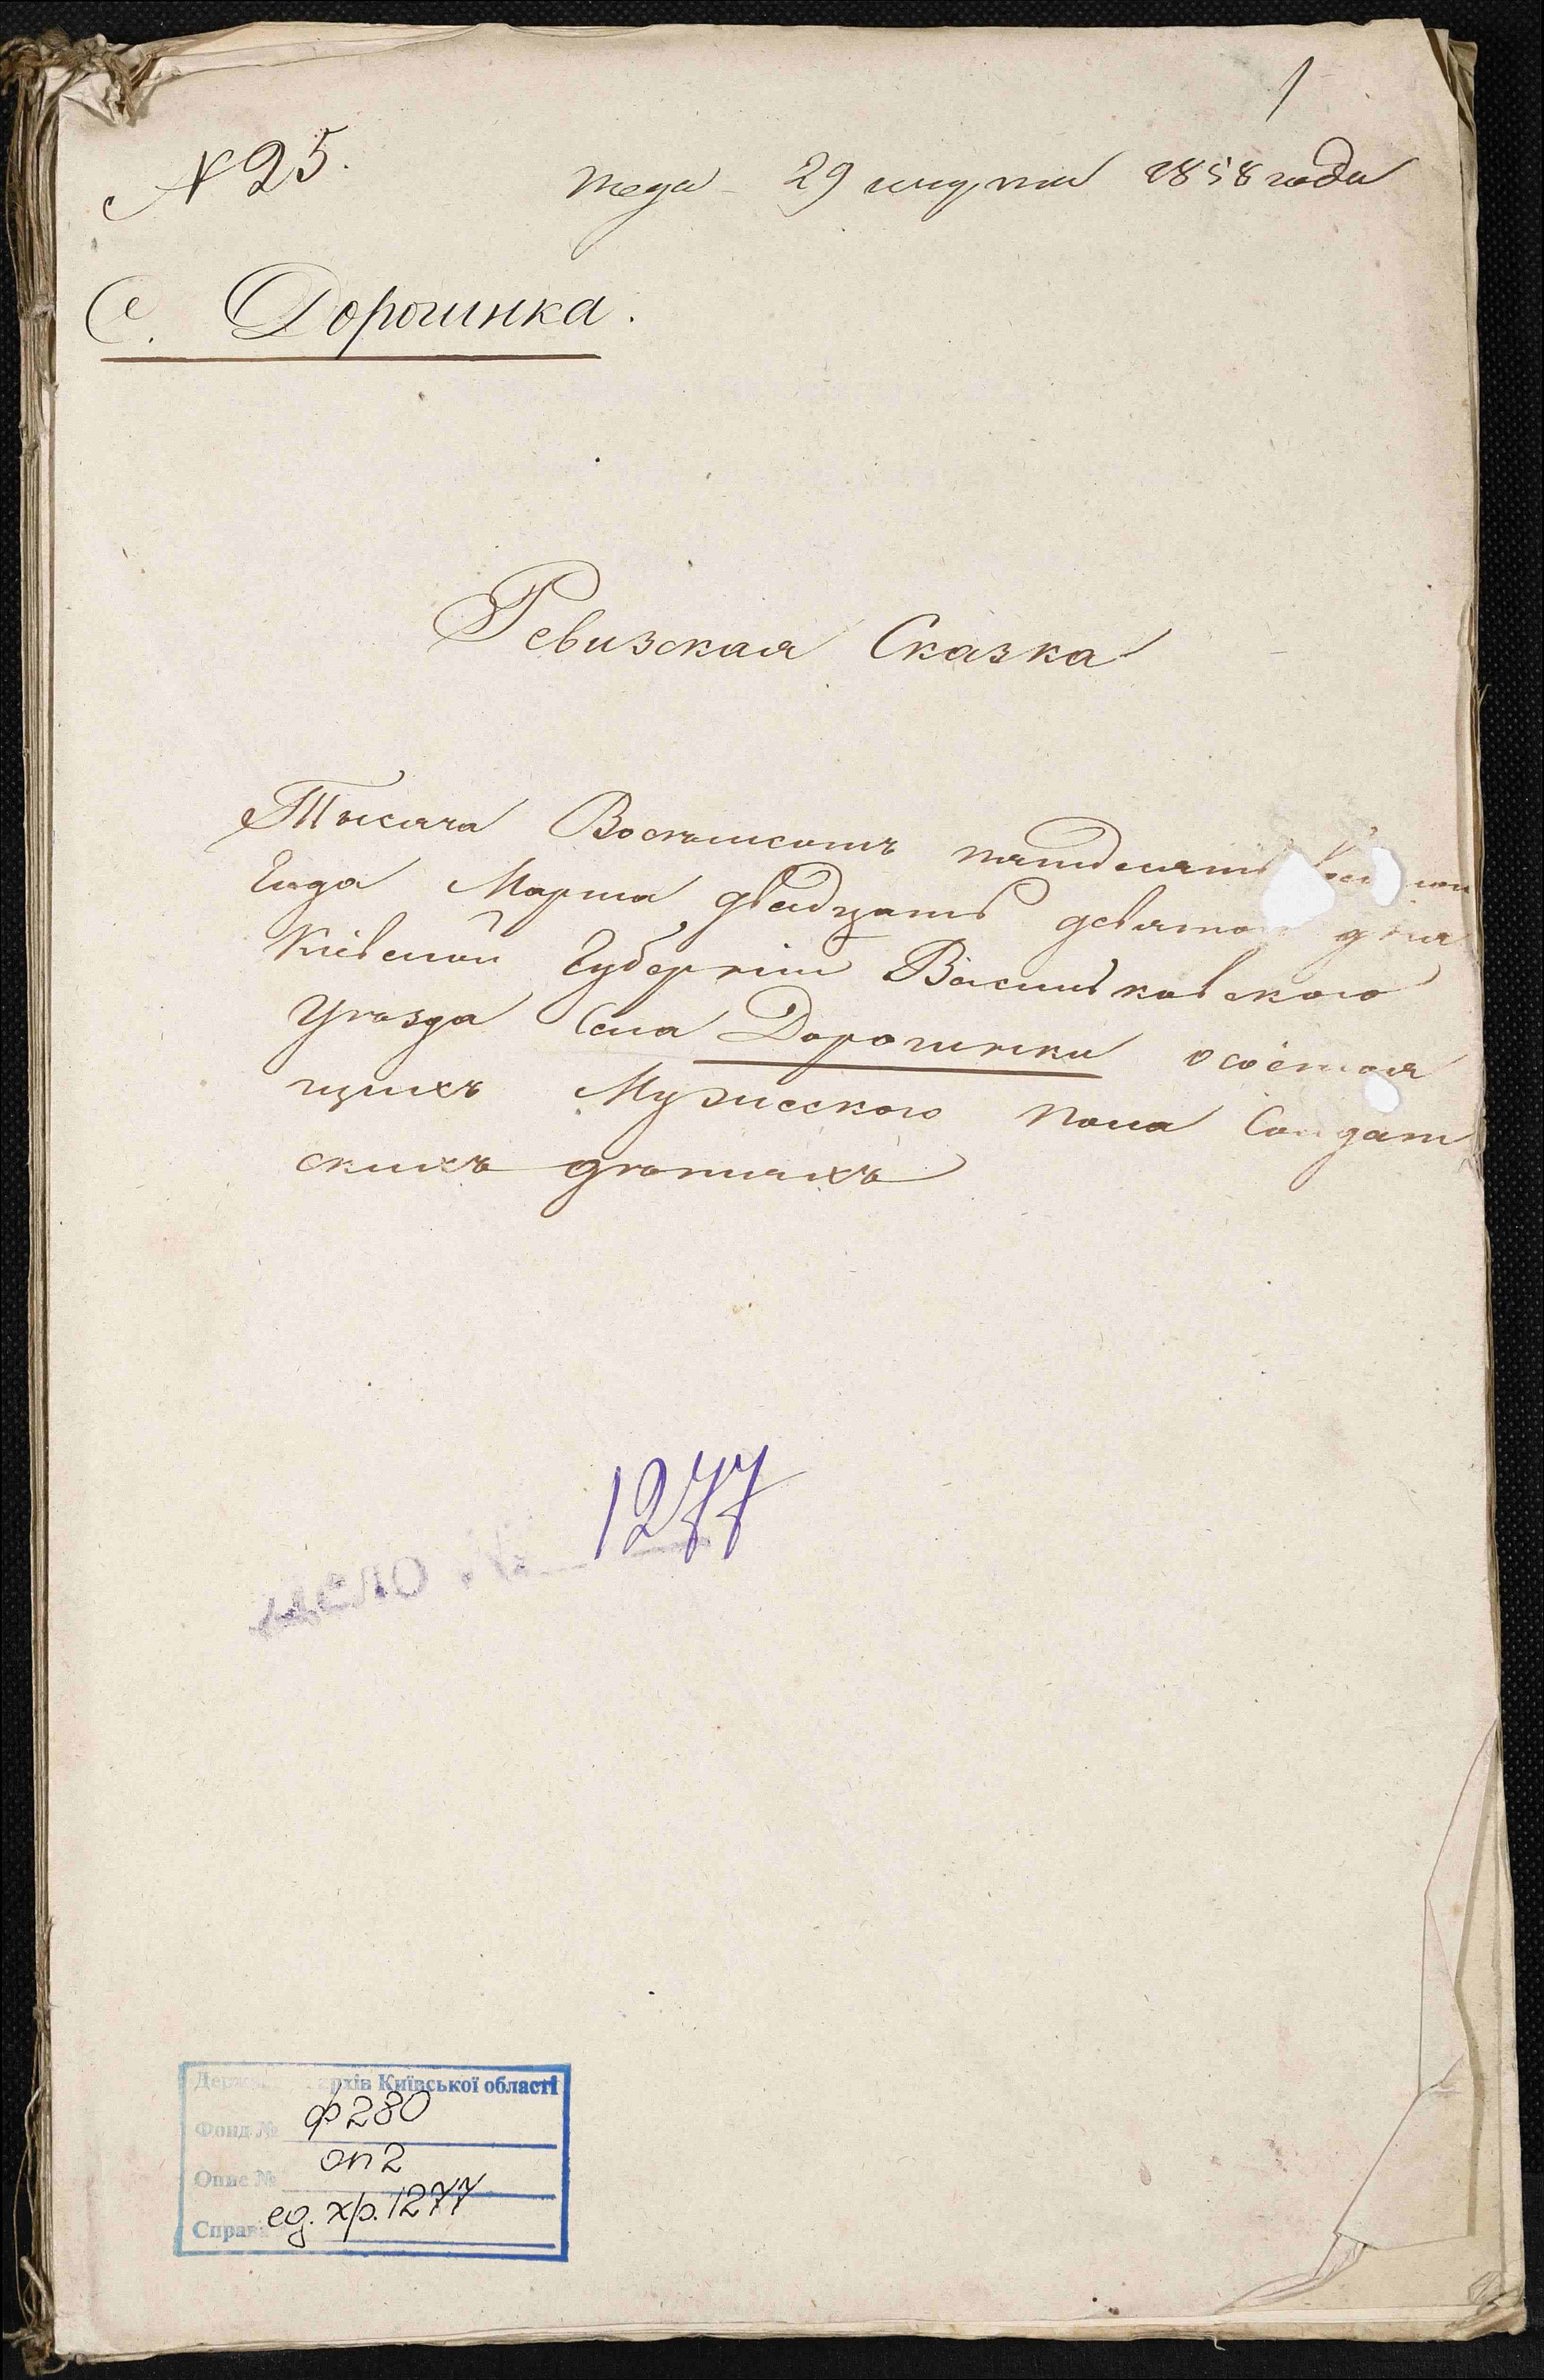 1
№ 25.
29 марта 1858 года
С. Дорогинка.
Ревизская Сказка
Тысяча Восемьсотъ пятдесятъ
Года Марта двадцать девятого дня
Кіевской Губерніи Васильковского
Уѣзда Села Дорогинки о состоя
щихъ Мужескаго пола Солдат
скихъ дѣтяхъ
Дело № 1277
Державний архів Київської області
Фонд № ф 280
Опис № оп 2
Справа ед. хр. 1277